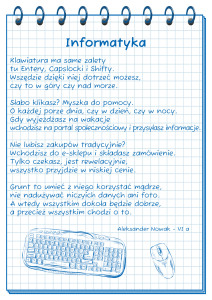 Informatyka
Klawiatura ma same zalety
tu Entery, Capslocki i Shifty.
Wszędzie dzięki niej dotrzeć możesz,
czy to w góry czy nad morze.
Słabo klikasz? Myszka do pomocy.
O każdej porze dnia, czy w dzień, czy w nocy.
Gdy wyjeżdżasz na wakacje
wchodzisz na portal społecznościowy i przysyłasz informacje.
Nie lubisz zakupów tradycyjnie?
Wchodzisz do e-sklepu i składasz zamówienie.
Tylko czekasz, jest rewelacyjnie,
wszystko przyjdzie w niskiej cenie.
Grunt to umieć z niego korzystać mądrze,
nie nadużywać niczyich danych ani foto.
A wtedy wszystkim dokoła będzie dobrze,
a przecież wszystkim chodzi o to.
Aleksander Nowak - VI a